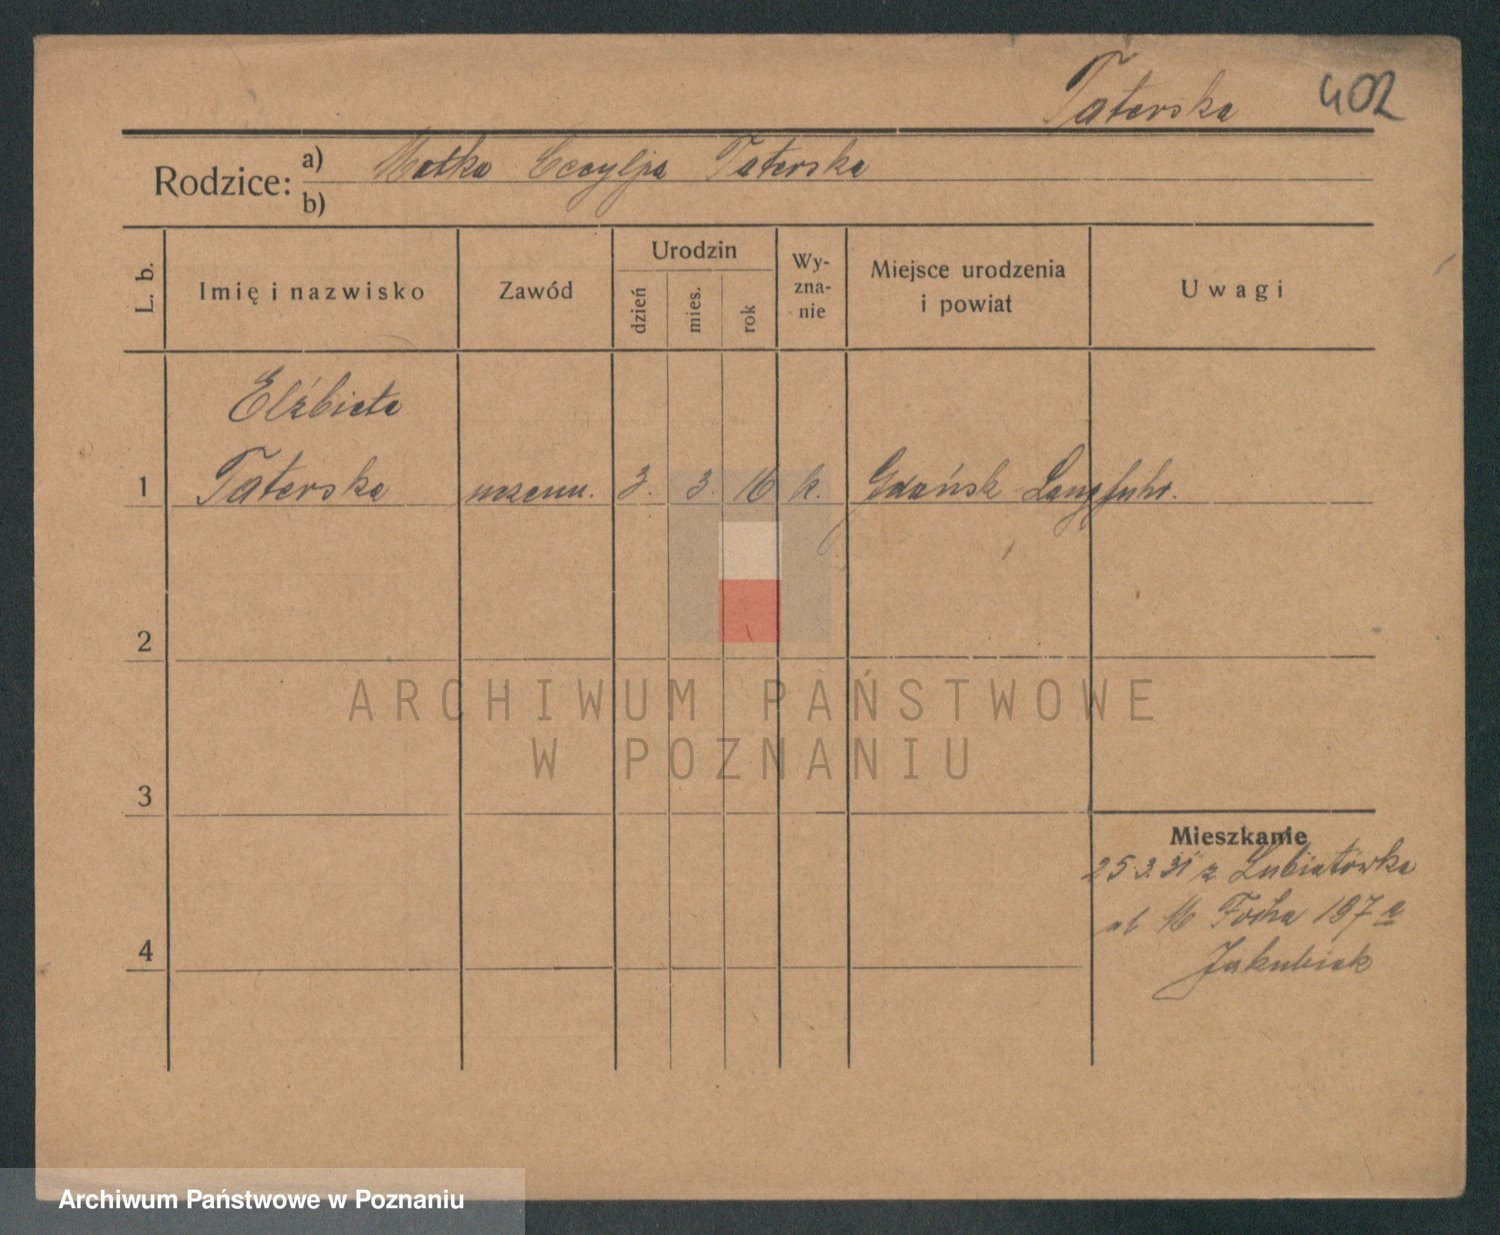 Taterska 402
Rodzice: a) Matka Cecylja Taterska
b)
L. b.
Imię i nazwisko
Zawód
Urodzin
dzień
mies.
rok
Wy-
zna-
nie
Miejsce urodzenia
i powiat
Uwagi
Elżbieta
1 Taterska uczenn. 3. 3. 16 k. Gdańsk Langfuhr.
2
3
4
Mieszkanie
25 3. 31 z Lubiatówka
ul M Focha 187 a
Jakubiak
ARCHIWUM PAŃSTWOWE
W POZNANIU
Archiwum Państwowe w Poznaniu